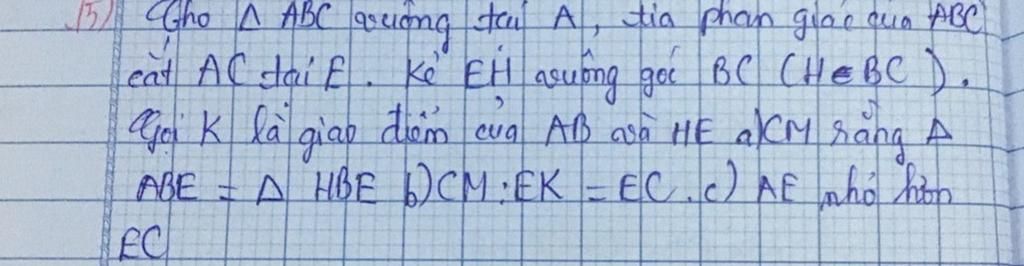 15) Cho Δ ABC vuông tại A, tia phân giác của ABC
cắt AC tại E. Kẻ EH vuông góc BC (H∈BC).
Gọi K là giao điểm của AB và HE a)CM rằng Δ
ABE = Δ HBE b)CM: EK = EC. c) AE nhỏ hơn
EC